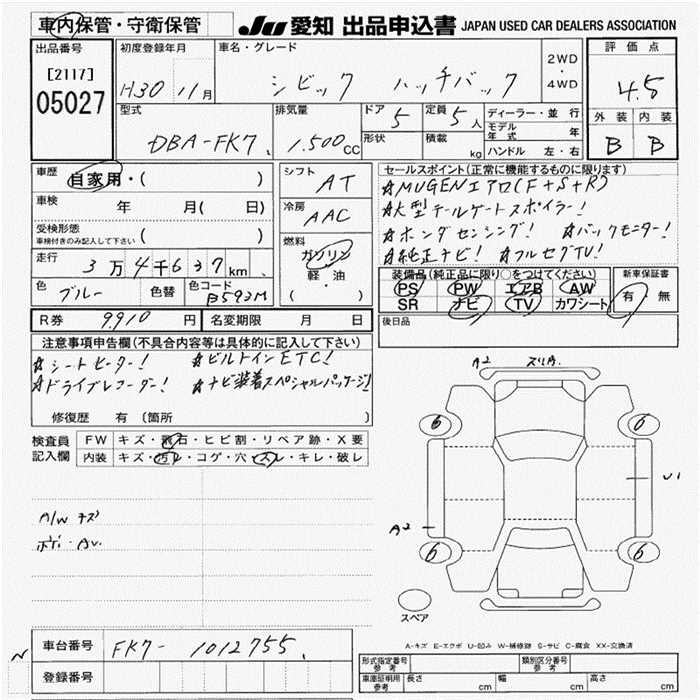 車内保管・守衛保管 JU 愛知 出品申込書 JAPAN USED CAR DEALERS ASSOCIATION
出品番号 [2117] 05027
初度登録年月 H30 11月
車名・グレード シビック ハッチバック
2WD・4WD
評価点 4.5
外装 内装
B B
型式 DBA-FK7
排気量 1.500cc
ドア 5 定員 5人
形状 積載 kg
ディーラー・並行
モデル年式 年
ハンドル 左・右
車歴 自家用・( )
車検 年 月( 日)
受検形態 車検付きのみ記入して下さい ( )
走行 3万4千637km
色 ブルー 色替 色コード B593M
シフト AT
冷房 AAC
燃料 ガソリン 軽・油 ( )
セールスポイント(正常に機能するものに限ります)
☆MUGENエアロ(F+S+R)
☆大型テールゲートスポイラー!
☆ホンダセンシング! ☆バックモニター!
☆純正ナビ! ☆フルセグTV!
装備品(純正品に限り○をつけてください) 新車保証書
PS PW エアB AW 有・無
SR ナビ TV カワシート
R券 9910円 名変期限 月 日
後日品
注意事項申告欄(不具合内容等は具体的に記入して下さい)
☆シートヒーター! ☆ビルトインETC!
☆ドライブレコーダー! ☆ナビ装着スペシャルパッケージ!
修復歴 有 (箇所 )
検査員記入欄 FW キズ・飛石・ヒビ割・リペア跡・X要
内装 キズ・汚レ・コゲ・穴・スレ・キレ・破レ
A/W キズ
ボディ・AU.
A2 スリキ.
6 6
U1
A2
6 6
スペア
A-キズ E-エクボ U-凹み W-補修跡 S-サビ C-腐食 XX-交換済
車台番号 FK7-1012755
登録番号
型式指定番号 参考 類別区分番号 参考
車庫証明用 参考 長さ cm 幅 cm 高さ cm